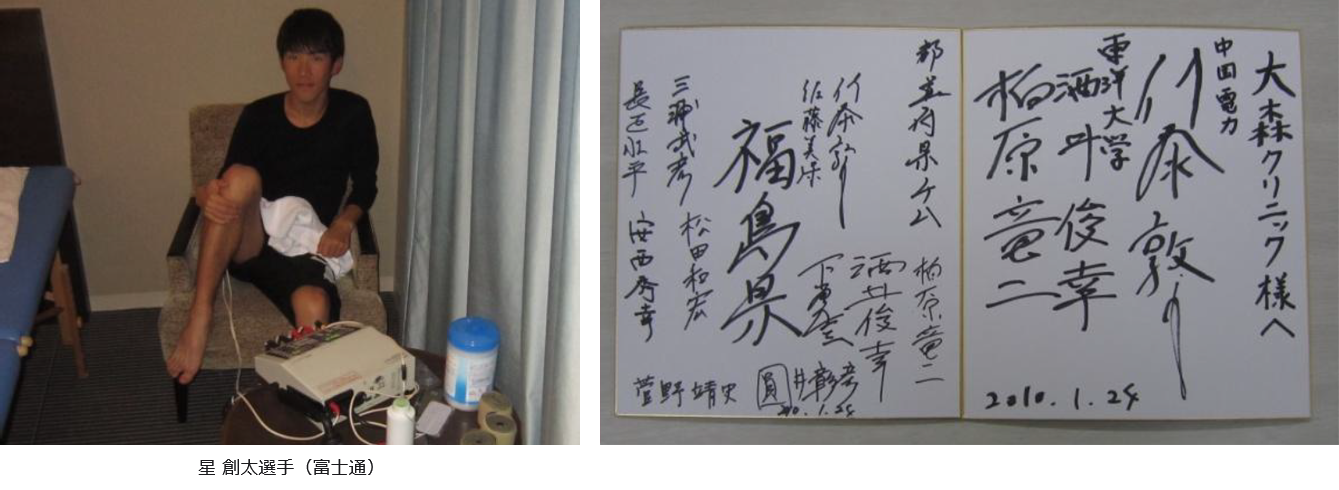 星 創太選手（富士通）
大森クリニック様へ
中国電力
東洋大学
酒井俊幸
柏原竜二
2010.1.24
都道府県ケム
柏原竜二
酒井俊幸
佐藤美保
福島県
三浦武彦
松田和宏
安西秀幸
菅野靖史
圓井彰彦
2010.1.24